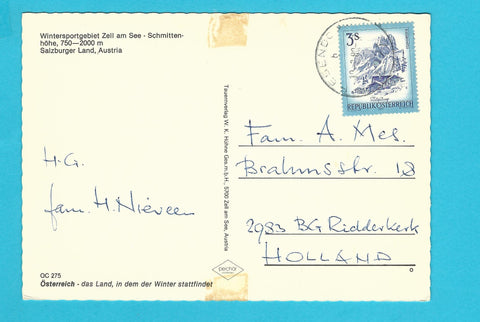 Wintersportgebiet Zell am See - Schmitten-
höhe, 750—2000 m
Salzburger Land, Austria
3s
REPUBLIK ÖSTERREICH
Fam. A. Mes.
Brahmsstr. 18
2983 BG Ridderkerk
HOLLAND
H.G.
fam. H. Nieveen
Tauernverlag W. K. Hühne Ges.m.b.H., 5700 Zell am See, Austria
OC 275
Österreich - das Land, in dem der Winter stattfindet